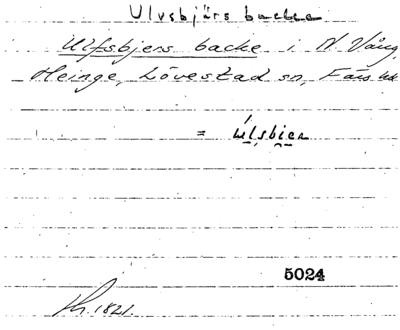 Ulvsbjärs backe
Ulfsbjers backe i N. Vång,
Heinge, Lövestad sn, Färs hd
= Úlsbjer
5024
1821.